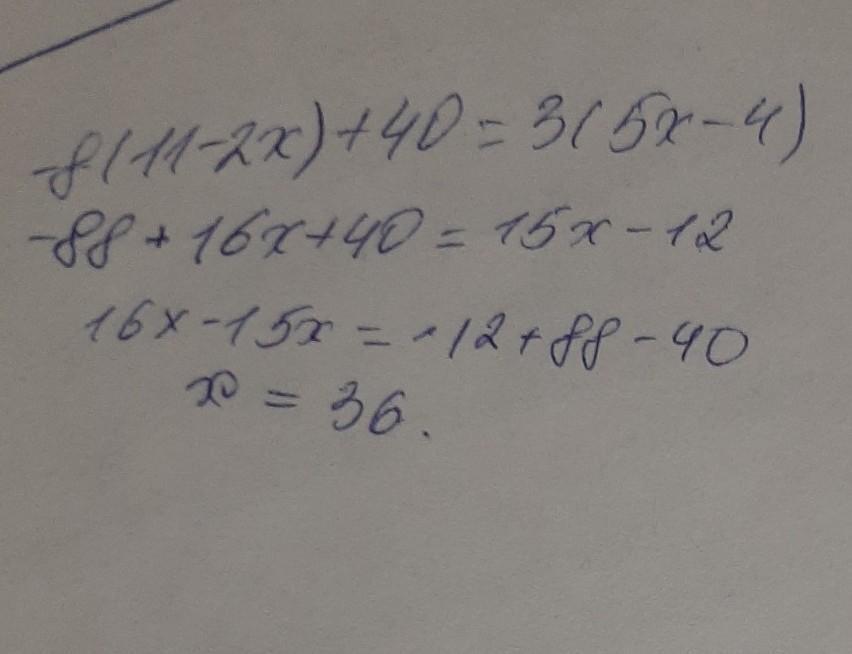 -8(11-2x)+40=3(5x-4)
-88+16x+40=15x-12
16x-15x=-12+88-40
x=36.